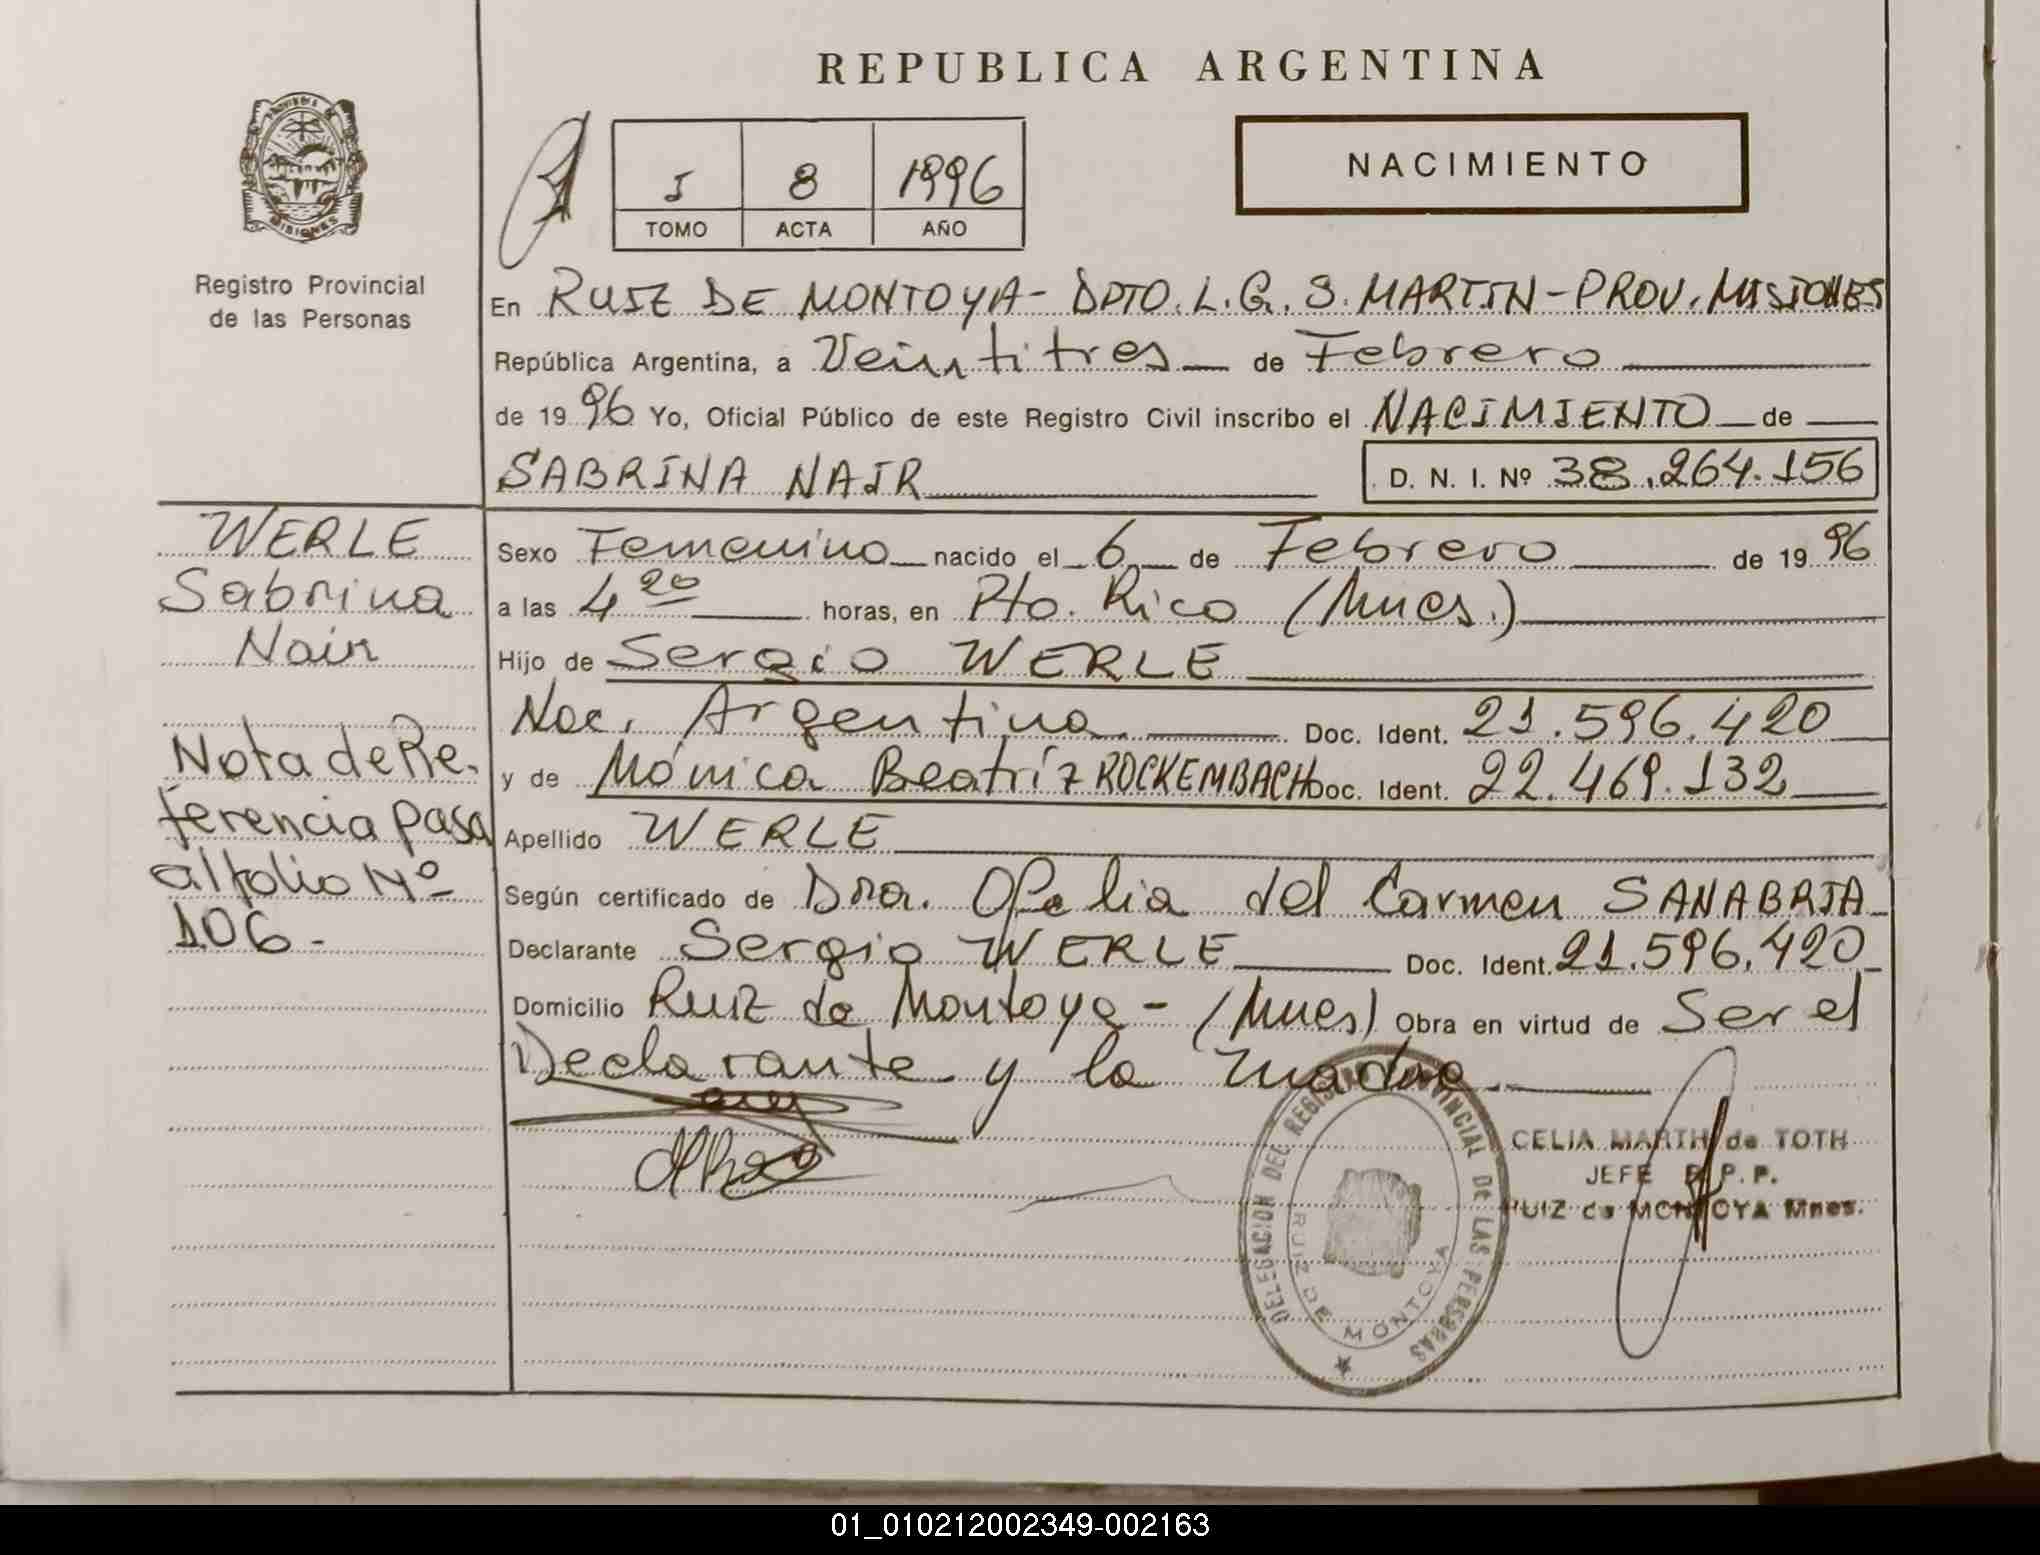 REPUBLICA ARGENTINA
PROVINCIA DE
MISIONES
Registro Provincial
de las Personas
I 8 1996
TOMO ACTA AÑO
NACIMIENTO
En RUIZ DE MONTOYA - DPTO. L. G. S. MARTIN - PROV. MISIONES
República Argentina, a Veintitres de Febrero
de 19 96 Yo, Oficial Público de este Registro Civil inscribo el NACIMIENTO de
SABRINA NAIR D. N. I. Nº 38.264.156
WERLE
Sabrina
Nair
Nota de Re-
ferencia pasa
al folio Nº
106.-
Sexo Femenino nacido el 6 de Febrero de 19 96
a las 4 20 horas, en Pto. Rico (Mnes.)
Hijo de Sergio WERLE
Nac. Argentina Doc. Ident. 21.596.420
y de Mónica Beatríz ROCKEMBACH Doc. Ident. 22.469.132
Apellido WERLE
Según certificado de Dra. Ofelia del Carmen SANABRIA
Declarante Sergio WERLE Doc. Ident. 21.596.420
Domicilio Ruiz de Montoya - (Mnes) Obra en virtud de Ser el
Declarante y la madre
DELEGACION DEL REGISTRO PROVINCIAL DE LAS PERSONAS
RUIZ DE MONTOYA
CELIA MARTH de TOTH
JEFE R.P.P.
RUIZ de MONTOYA Mnes.
01_010212002349-002163